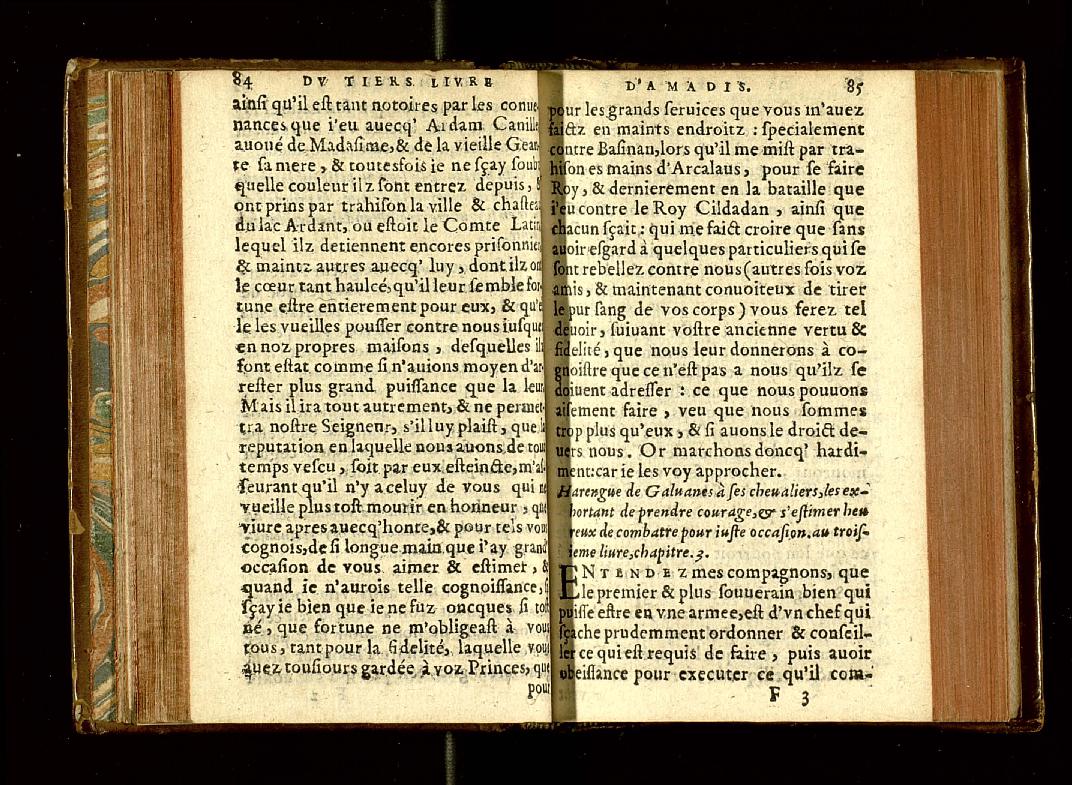 84 DV TIERS LIVRE
ainſi qu'il eſt tant notoires par les conue-
nances que i'eu auecq' Ardam Canille
auoué de Madaſime, & de la vieille Gean-
te ſa mere, & toutesfois ie ne ſçay ſoubz
quelle couleur ilz ſont entrez depuis, &
ont prins par trahiſon la ville & chaſteau
du lac Ardant, ou eſtoit le Comte Latin
lequel ilz detiennent encores priſonnier
& maintz autres auecq' luy, dont ilz ont
le cœur tant haulcé, qu'il leur ſemble for-
tune eſtre entierement pour eux, & qu'el
le les vueilles pouſſer contre nous iuſques
en noz propres maiſons, deſquelles ilz
font eſtat comme ſi n'auions moyen d'ar-
reſter plus grand puiſſance que la leur
Mais il ira tout autrement, & ne permet-
tra noſtre Seigneur, s'il luy plaiſt, que la
reputation en laquelle nous auons de tout
temps veſcu, ſoit par eux eſteincte, m'aſ-
ſeurant qu'il n'y a celuy de vous qui ne
vueille plus toſt mourir en honneur, que
viure apres auecq' honte, & pour tels vous
cognois, de ſi longue main que i'ay grand'
occaſion de vous aimer & eſtimer, &
quand ie n'aurois telle cognoiſſance, ſi
ſçay ie bien que ie ne fuz oncques ſi toſt
né, que fortune ne m'obligeaſt à vous
tous, tant pour la fidelité, laquelle vous
auez touſiours gardée à voz Princes, que
pour
D'AMADIS. 85
pour les grands ſeruices que vous m'auez
faictz en maints endroitz : ſpecialement
contre Baſinan, lors qu'il me miſt par tra-
hiſon es mains d'Arcalaus, pour ſe faire
Roy, & dernierement en la bataille que
i'eu contre le Roy Cildadan, ainſi que
chacun ſçait : qui me faict croire que ſans
auoir eſgard à quelques particuliers qui ſe
ſont rebellez contre nous (autres fois voz
amis, & maintenant conuoiteux de tirer
le pur ſang de vos corps) vous ferez tel
deuoir, ſuiuant voſtre ancienne vertu &
fidelité, que nous leur donnerons à co-
gnoiſtre que ce n'eſt pas a nous qu'ilz ſe
doiuent adreſſer : ce que nous pouuons
aiſement faire, veu que nous ſommes
trop plus qu'eux, & ſi auons le droict de-
uers nous. Or marchons doncq' hardi-
ment: car ie les voy approcher.
Harengue de Galuanes à ſes cheualiers, les ex-
hortant de prendre courage, & s'eſtimer heu
reux de combatre pour iuſte occaſion. au troiſ-
ieme liure, chapitre. 3.
ENTENDEZ mes compagnons, que
le premier & plus ſouuerain bien qui
puiſſe eſtre en vne armee, eſt d'vn chef qui
ſçache prudemment ordonner & conſeil-
ler ce qui eſt requis de faire, puis auoir
obeiſſance pour executer ce qu'il com-
F 3